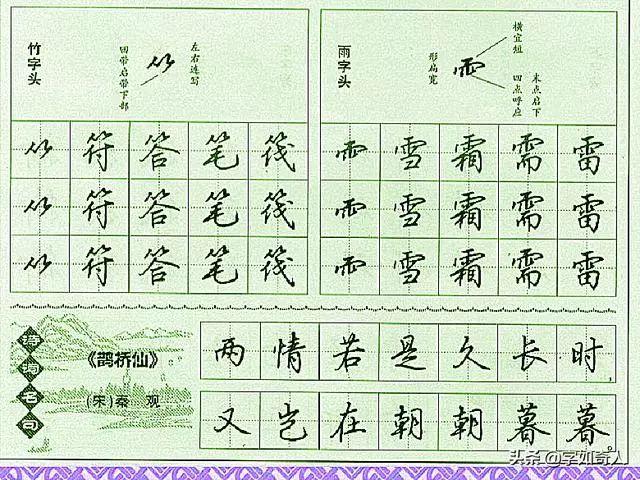 竹字头
回带启带下部
⺮
左右连写
雨字头
形扁宽
⻗
横宜短
四点呼应
末点启下
⺮ 符 答 笔 筏
⺮ 符 答 笔 筏
⺮ 符 答 笔 筏
⻗ 雪 霜 需 雷
⻗ 雪 霜 需 雷
⻗ 雪 霜 需 雷
诗词名句
《鹊桥仙》
(宋)秦 观
两情若是久长时,
又岂在朝朝暮暮。
头条 @字如奇人